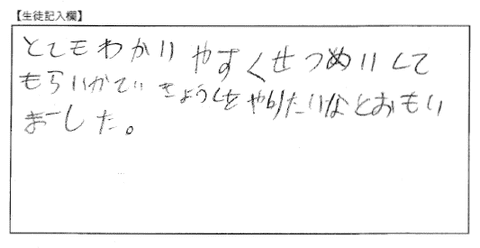 【生徒記入欄】
とてもわかりやすくせつめいして
もらいかていきょうしをやりたいなとおもい
ました。